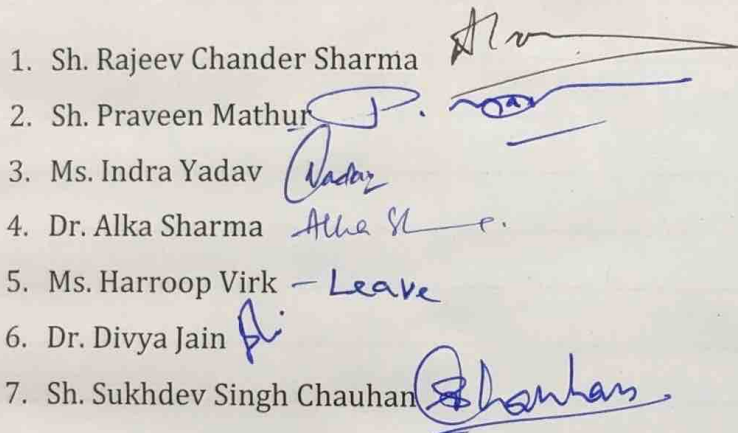 1. Sh. Rajeev Chander Sharma
2. Sh. Praveen Mathur P.
3. Ms. Indra Yadav Yadav
4. Dr. Alka Sharma Alka Sh
5. Ms. Harroop Virk - Leave
6. Dr. Divya Jain
7. Sh. Sukhdev Singh Chauhan Chauhan